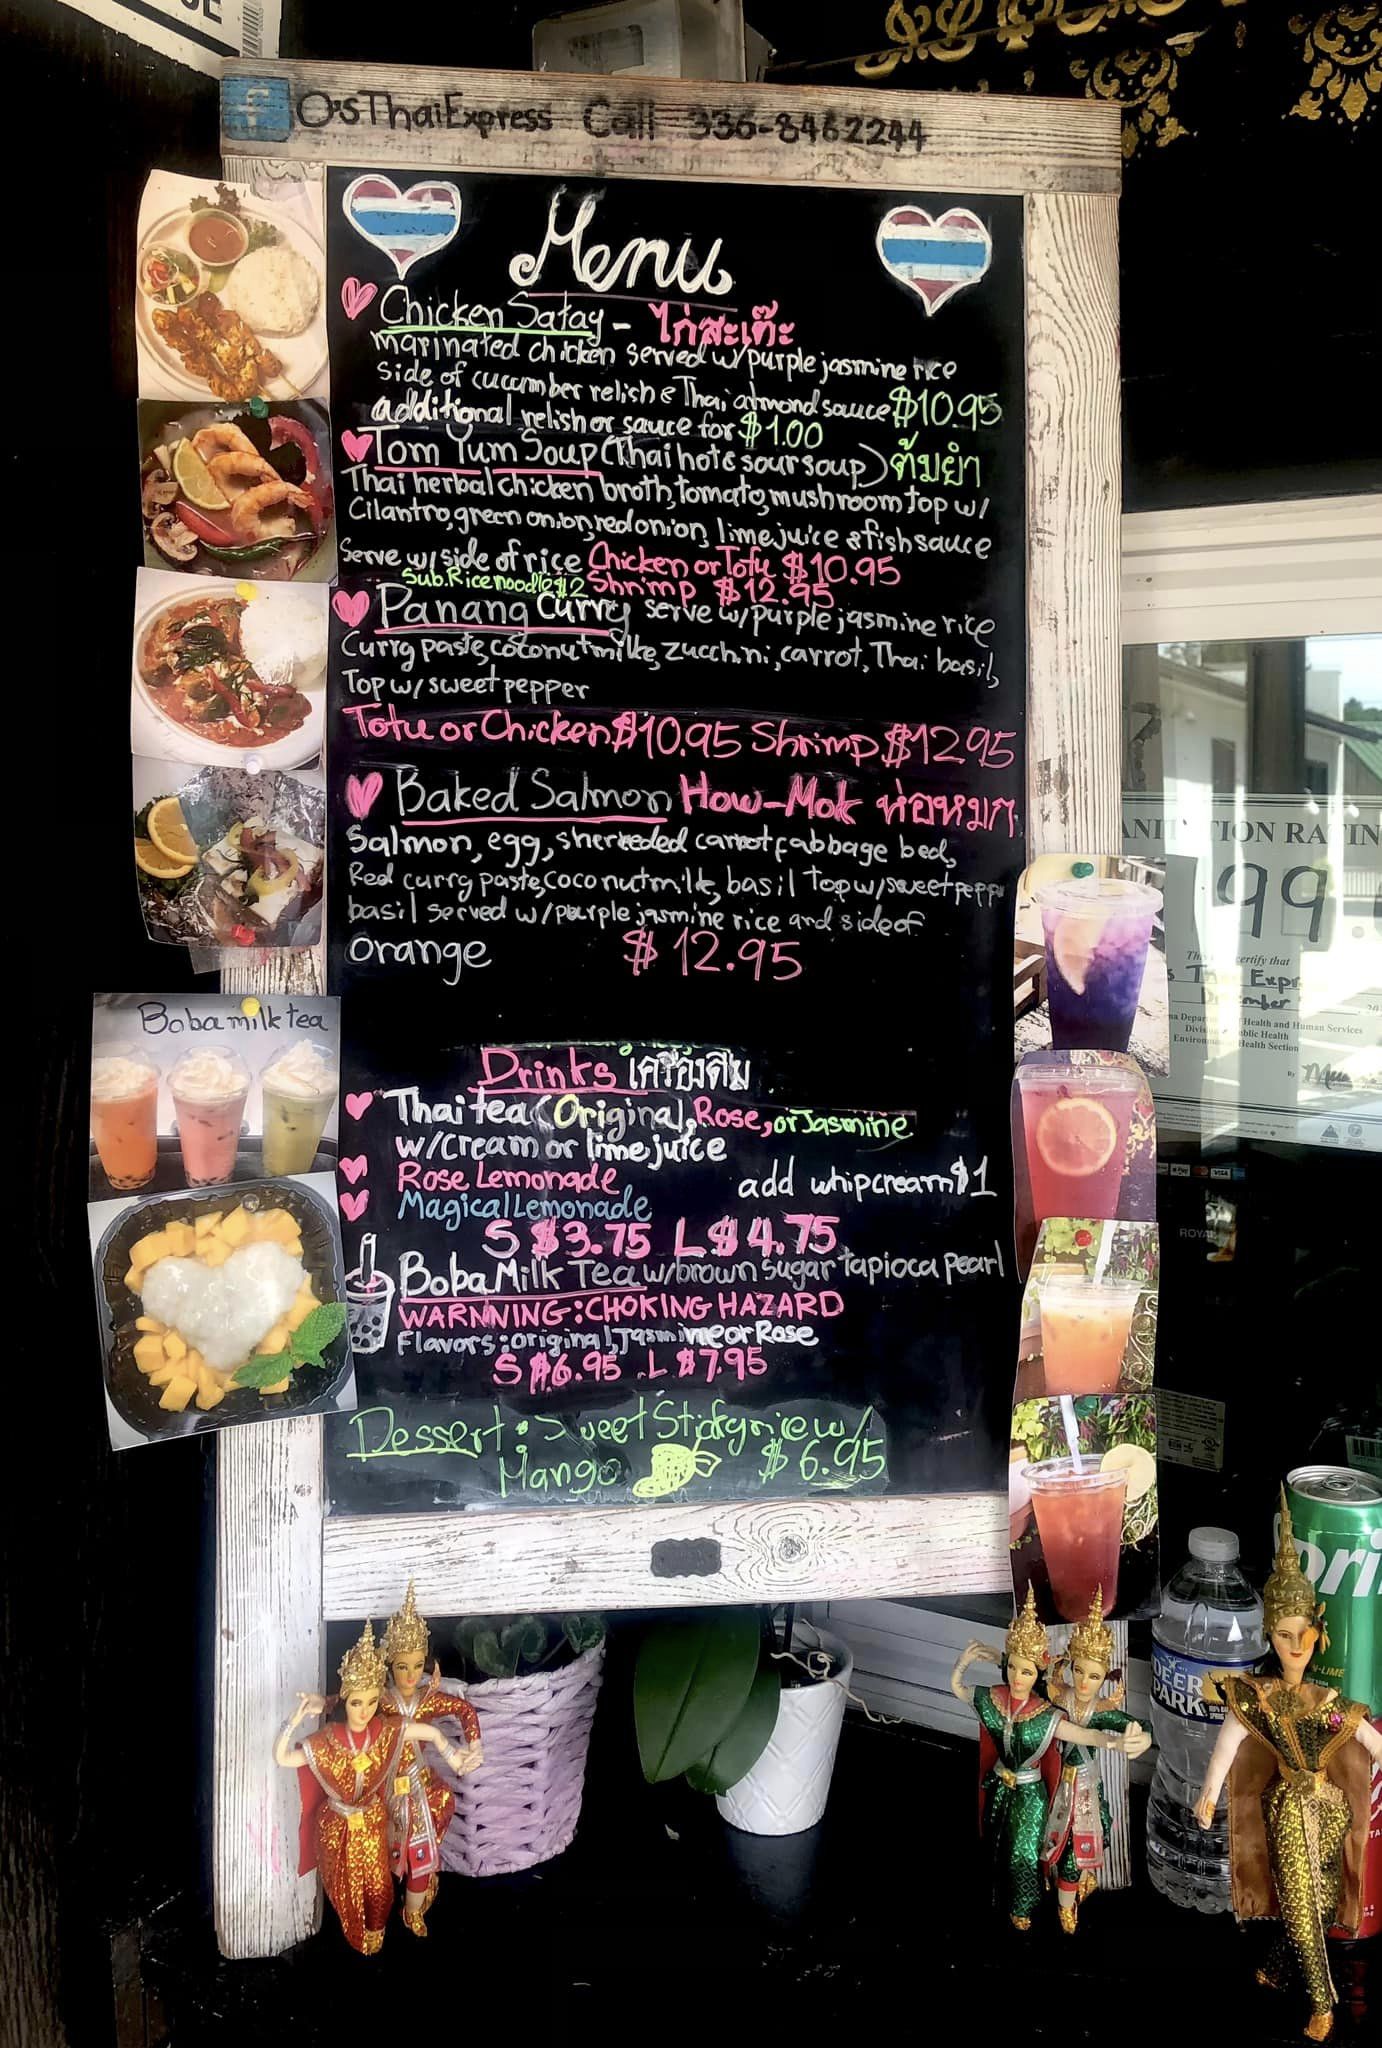 O'sThaiExpress Call 336-8462244
Menu
Chicken Satay - ไก่สะเต๊ะ
marinated chicken served w/purple jasmine rice
side of cucumber relish & Thai almond sauce $10.95
additional relish or sauce for $1.00
Tom Yum Soup (Thai hot & sour soup) ต้มยำ
Thai herbal chicken broth, tomato, mushroom, top w/
Cilantro, green onion, red onion, lime juice & fish sauce
Serve w/ side of rice Chicken or Tofu $10.95
Sub. Rice noodle $2 Shrimp $12.95
Panang Curry serve w/purple jasmine rice
Curry paste, coconut milk, zucchini, carrot, Thai basil,
Top w/ sweet pepper
Tofu or Chicken $10.95 Shrimp $12.95
Baked Salmon How-Mok ห่อหมก
Salmon, egg, sherreded carrot, cabbage bed,
Red curry paste, coconut milk, basil top w/sweet pepper
basil served w/purple jasmine rice and side of
orange $12.95
Boba milk tea
Drinks เครื่องดื่ม
Thai tea (Original, Rose, or Jasmine
w/Cream or lime juice
Rose Lemonade add whip cream $1
Magical Lemonade
S $3.75 L $4.75
Boba Milk Tea w/brown sugar tapioca pearl
WARNNING: CHOKING HAZARD
Flavors: original, Jasmine or Rose
S $6.95 L $7.95
Dessert: Sweet Sticky rice w/
Mango $6.95
ION RATIN
99.
certify that
Expr
December
Health and Human Services
Public Health
Health Section
VISA
ROYA
DEER
PARK
N-LIME